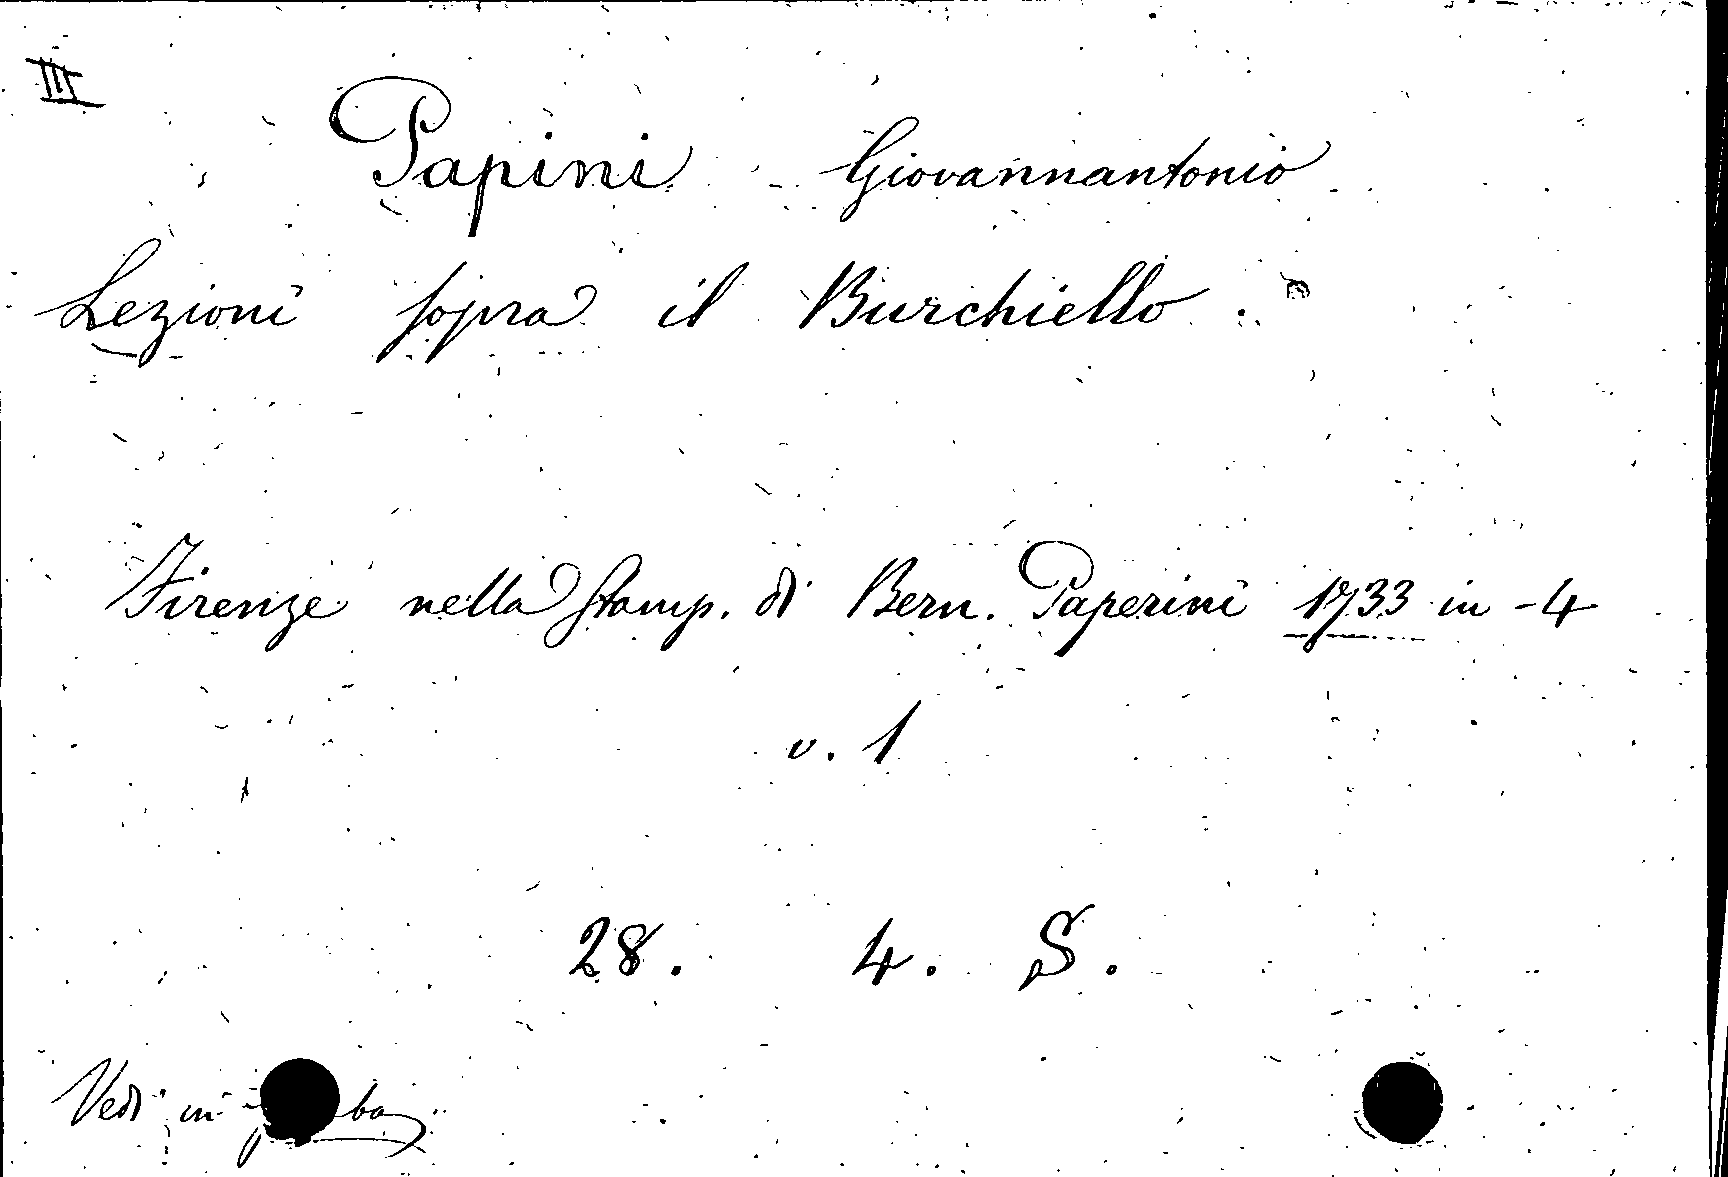 III
Papini Giovannantonio
Lezioni sopra il Burchiello.
Firenze nella Stamp. di Bern. Paperini 1733 in -4
v. 1
28. 4. S.
Vedi in